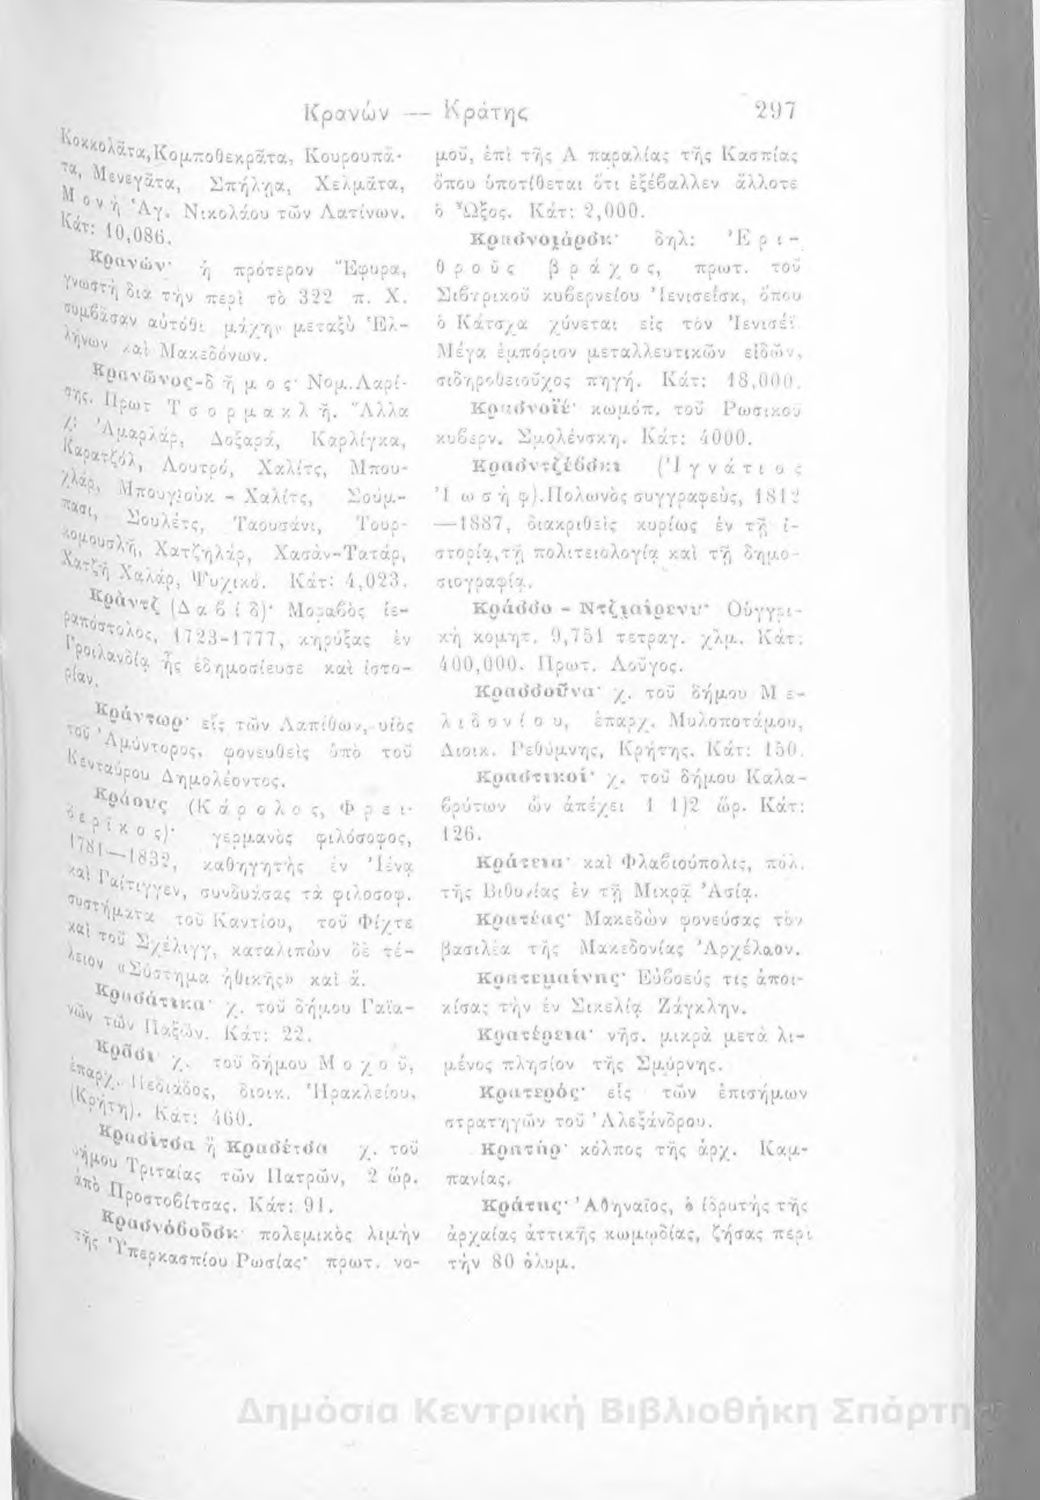 Κρανών — Κράτης 297
Κοκκολᾶτα, Κομποθεκρᾶτα, Κουρουπᾶ-
τα, Μενεγᾶτα, Σπήλῃα, Χελμᾶτα,
Μονὴ Ἁγ. Νικολάου τῶν Λατίνων.
Κάτ: 10,086.
Κρανών· ἡ πρότερον Ἔφυρα,
γνωστὴ διὰ τὴν περὶ τὸ 322 π. Χ.
συμβᾶσαν αὐτόθι μάχην μεταξὺ Ἑλ-
λήνων καὶ Μακεδόνων.
Κρανῶνος-δῆμος· Νομ. Λαρί-
σης. Πρωτ Τσορμακλῆ. Ἄλλα
χ: Ἀμαρλάρ, Δοξαρά, Καρλίγκα,
Καρατζόλ, Λουτρό, Χαλίτς, Μπου-
χλάρ, Μπουγιοὺκ - Χαλίτς, Σούμ-
πασι, Σουλέτς, Ταουσάνι, Τουρ-
κομουσλῆ, Χατζηλάρ, Χασάν-Τατάρ,
Χατζῆ Χαλάρ, Ψυχικό. Κάτ: 4,023.
Κράντζ (Δαβίδ)· Μοραβὸς ἱε-
ραπόστολος, 1723-1777, κηρύξας ἐν
Γροιλανδίᾳ ἧς ἐδημοσίευσε καὶ ἱστο-
ρίαν.
Κράντωρ· εἷς τῶν Λαπίθων, υἱὸς
τοῦ Ἀμύντορος, φονευθεὶς ὑπὸ τοῦ
Κενταύρου Δημολέοντος.
Κράους (Κάρολος, Φρει-
δερῖκος)· γερμανὸς φιλόσοφος,
1781—1832, καθηγητὴς ἐν Ἰένᾳ
καὶ Γαίτιγγεν, συνδυάσας τὰ φιλοσοφ.
συστήματα τοῦ Καντίου, τοῦ Φίχτε
καὶ τοῦ Σχέλιγγ, καταλιπὼν δὲ τέ-
λειον «Σύστημα ἠθικῆς» καὶ ἄ.
Κρασάτικα· χ. τοῦ δήμου Γαϊα-
νῶν τῶν Παξῶν. Κάτ: 22.
Κρᾶσι χ. τοῦ δήμου Μοχοῦ,
ἐπαρχ. Πεδιάδος, διοικ. Ἡρακλείου,
(Κρήτη). Κάτ: 460.
Κρασίτσα ἢ Κρασέτσα χ. τοῦ
δήμου Τριταίας τῶν Πατρῶν, 2 ὥρ.
ἀπὸ Προστοβίτσας. Κάτ: 91.
Κρασνόβοδσκ· πολεμικὸς λιμὴν
τῆς Ὑπερκασπίου Ρωσίας· πρωτ. νο-
μοῦ, ἐπὶ τῆς Α παραλίας τῆς Κασπίας
ὅπου ὑποτίθεται ὅτι ἐξέβαλλεν ἄλλοτε
ὁ Ὦξος. Κάτ: 2,000.
Κρασνοϊάρσκ· δηλ: Ἐρι-
θροῦς βράχος, πρωτ. τοῦ
Σιβηρικοῦ κυβερνείου Ἰενισεΐσκ, ὅπου
ὁ Κάτσχα χύνεται εἰς τὸν Ἰενισέϊ.
Μέγα ἐμπόριον μεταλλευτικῶν εἰδῶν,
σιδηροθειοῦχος πηγή. Κάτ: 18,000.
Κρασνοϊέ· κωμόπ. τοῦ Ρωσικοῦ
κυβερν. Σμολένσκη. Κάτ: 4000.
Κρασντζέβσκι (Ἰγνάτιος
Ἰωσὴφ). Πολωνὸς συγγραφεύς, 1812
—1887, διακριθεὶς κυρίως ἐν τῇ ἱ-
στορίᾳ, τῇ πολιτειολογίᾳ καὶ τῇ δημο-
σιογραφίᾳ.
Κράσσο - Ντζιαίρενυ· Οὑγγρι-
κὴ κομητ. 9,751 τετραγ. χλμ. Κάτ:
400,000. Πρωτ. Λοῦγος.
Κρασσοῦνα· χ. τοῦ δήμου Με-
λιδονίου, ἐπαρχ. Μυλοποτάμου,
Διοικ. Ρεθύμνης, Κρήτης. Κάτ: 150.
Κραστικοί· χ. τοῦ δήμου Καλα-
βρύτων ὧν ἀπέχει 1 1)2 ὥρ. Κάτ:
126.
Κράτεια· καὶ Φλαβιούπολις, πόλ.
τῆς Βιθυνίας ἐν τῇ Μικρᾷ Ἀσίᾳ.
Κρατέας· Μακεδὼν φονεύσας τὸν
βασιλέα τῆς Μακεδονίας Ἀρχέλαον.
Κρατεμαίνης· Εὐβοεύς τις ἀποι-
κίσας τὴν ἐν Σικελίᾳ Ζάγκλην.
Κρατέρεια· νῆσ. μικρὰ μετὰ λι-
μένος πλησίον τῆς Σμύρνης.
Κρατερός· εἷς τῶν ἐπισήμων
στρατηγῶν τοῦ Ἀλεξάνδρου.
Κρατήρ· κόλπος τῆς ἀρχ. Καμ-
πανίας.
Κράτης· Ἀθηναῖος, ὁ ἱδρυτὴς τῆς
ἀρχαίας ἀττικῆς κωμῳδίας, ζήσας περὶ
τὴν 80 ὀλυμ.
Δημόσια Κεντρική Βιβλιοθήκη Σπάρτη